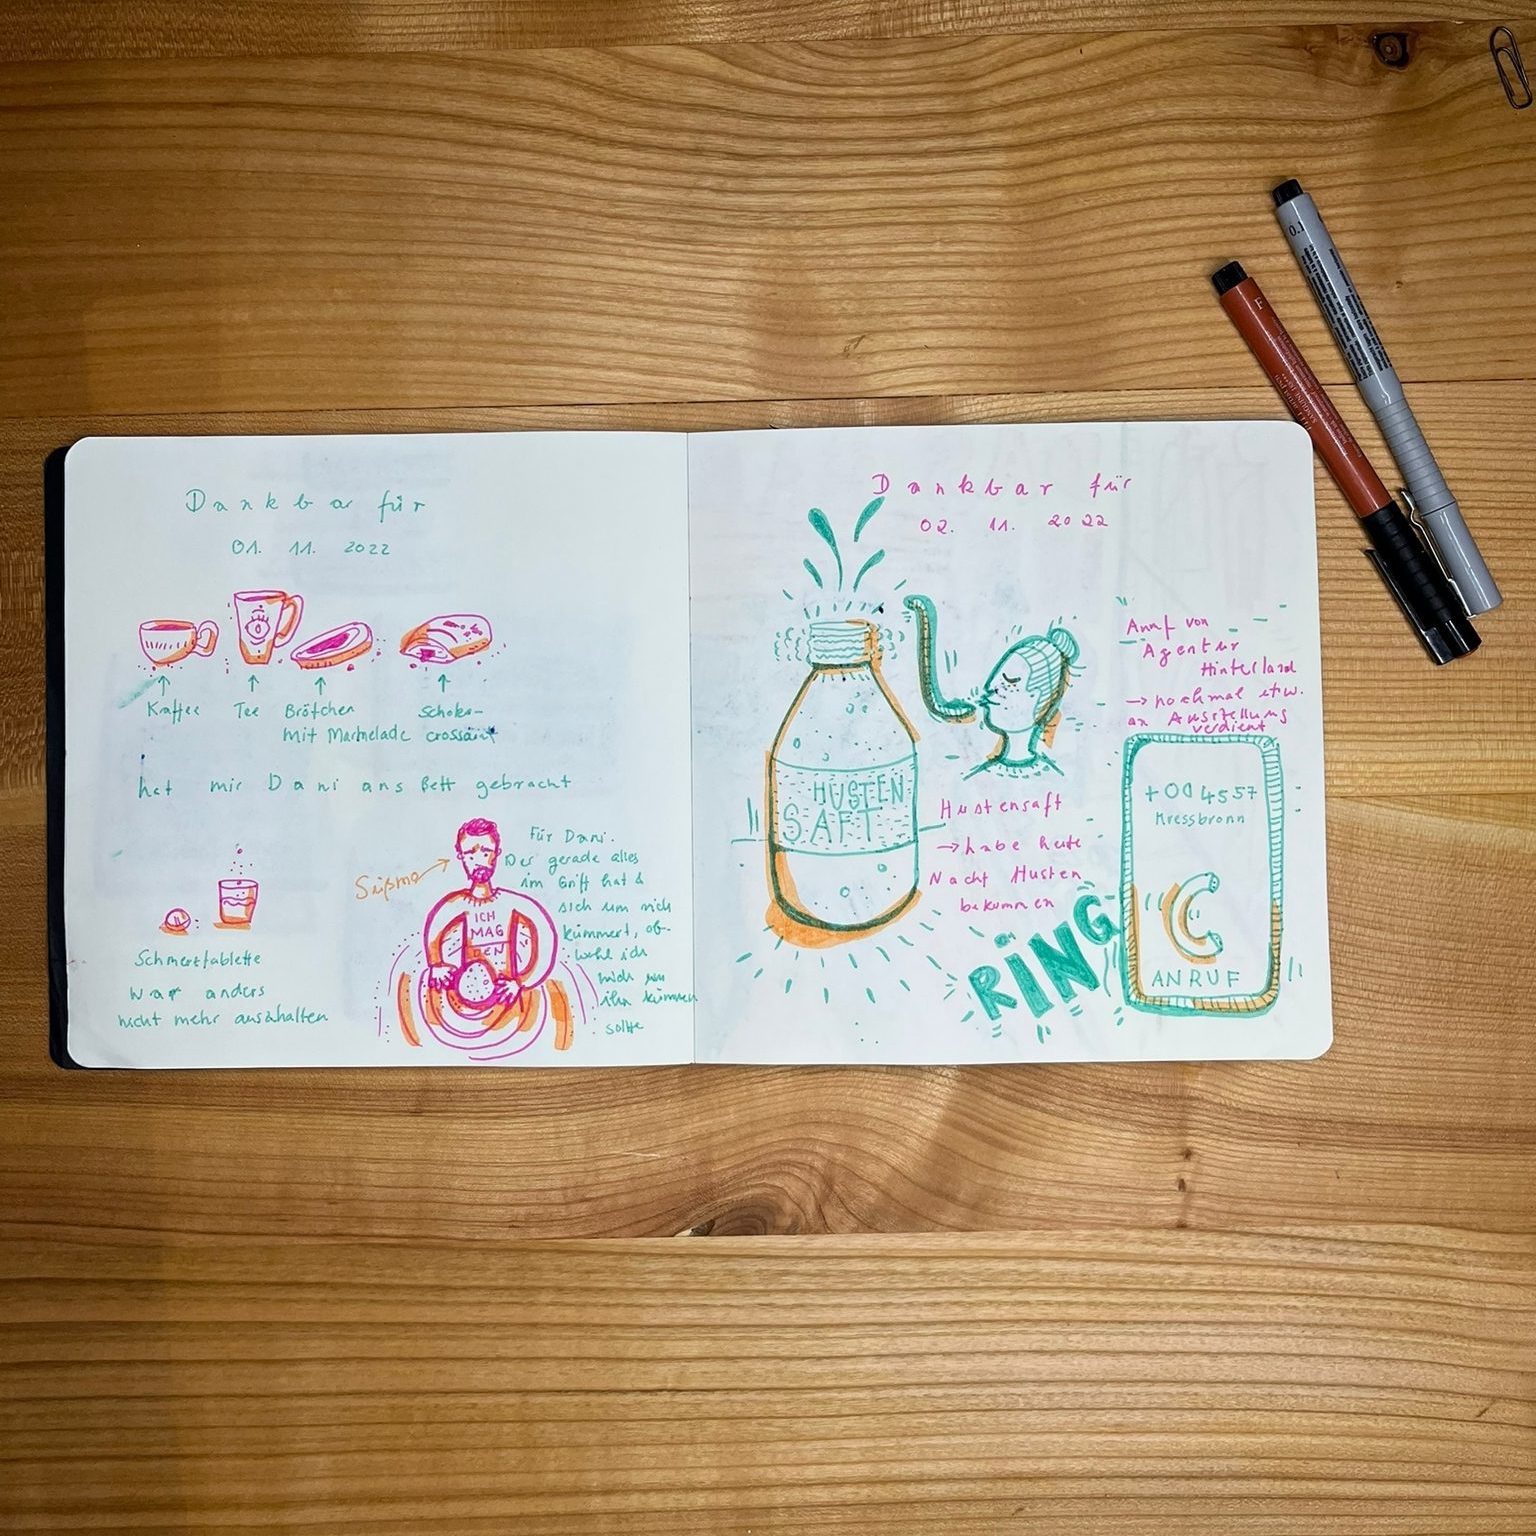 Dankbar für
01. 11. 2022
Kaffee
Tee
Brötchen
mit Marmelade
Schoko-
crossaint
hat mir Dani ans Bett gebracht
Schmerztablette
war anders
nicht mehr auszuhalten
ICH
MAG
DEN
Für Dani.
Der gerade alles
im Griff hat &
sich um mich
kümmert, ob-
wohl ich
mich um
ihn kümmern
sollte
Dankbar für
02. 11. 2022
HUSTEN
SAFT
Hustensaft
→ habe heute
Nacht Husten
bekommen
Anruf von
Agentur
Hinterland
→ nochmal etw.
an Ausstellung
verdient
+00 4557
Kressbronn
RING
ANRUF
0.1
F